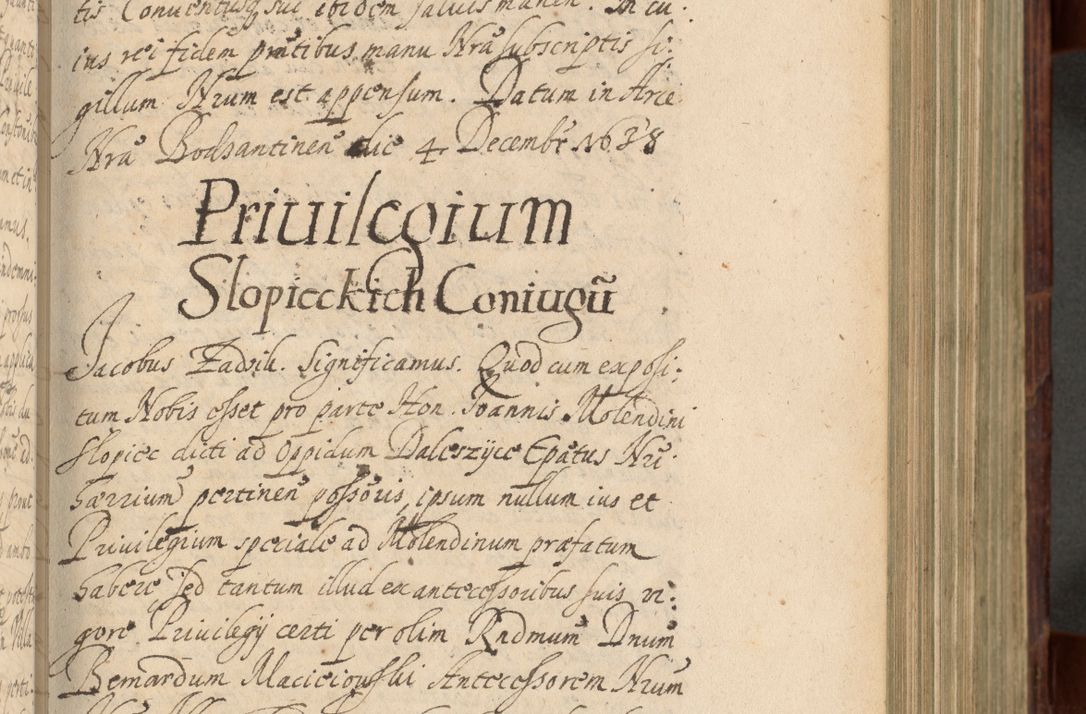 tis Conuentusq; sui ibidem saluis manen. In cu:
ius rei fidem pntibus manu Nra subscriptis si:
gillum Nrum est appensum. Datum in Arce
Nra Bodzantinen die 4 Decembr 1638
Priuilegium
Slopieckich Coniugũ
Jacobus Zadzik. Significamus. Quod cum exposi:
tum Nobis esset pro parte Hon. Joannis Molendini
Slopiec dicti ad oppidum Daleszyce Epatus Nri
pertinen possoris, ipsum nullum ius et
Priuilegium speciale ad Molendinum præfatum
habere sed tantum illud ex antecessoribus suis vi:
gore Priuilegij certi per olim Rndmum Dnum
Bernardum Macieiowski Antecessorem Nrum